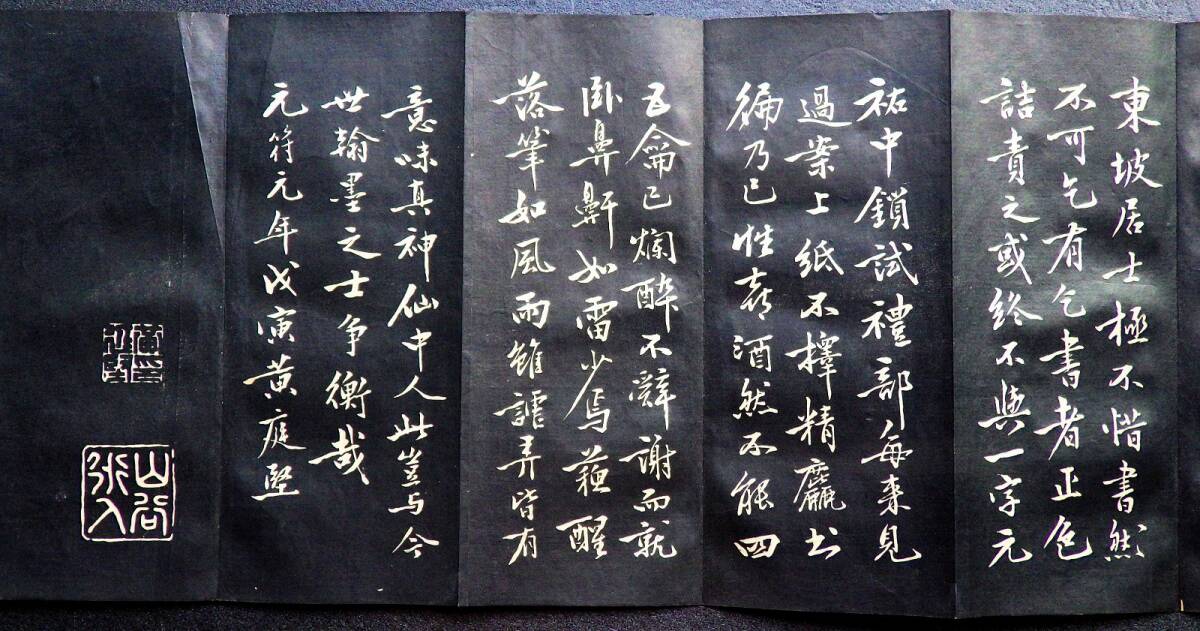 東坡居士極不惜書然
不可乞有乞書者正色
詰責之或終不與一字元
祐中鎖試禮部每來見
過案上紙不擇精麤書
徧乃已性喜酒然不能四
五龠已爛醉不辭謝而就
臥鼻鼾如雷少焉蘇醒
落筆如風雨雖謔弄皆有
意味真神仙中人此豈与今
世翰墨之士爭衡哉
元符元年戊寅黃庭堅
山谷